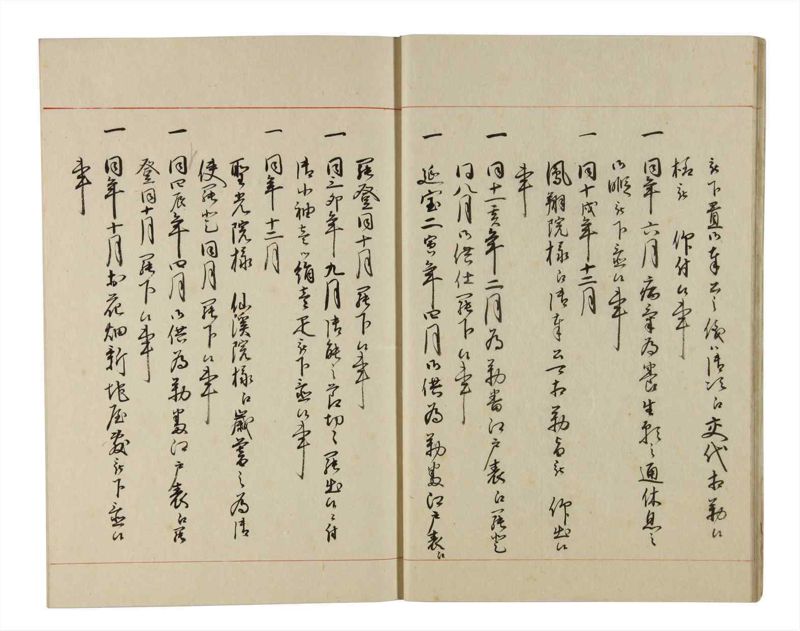 被下置御奉公之儀ハ清次江交代相勤候
様被 仰付候事
一 同年六月病気為養生願之通休息之
御暇被下置候事
一 同十戌年十二月
鳳翔院様江清奉公可相勤旨被 仰出候
事
一 同十一亥年二月為勤番江戸表江罷登
同八月御供仕罷下候事
一 延宝二寅年四月御供為勤番江戸表江
罷登同十月罷下候事
一 同三卯年九月清能之節切々罷出候ニ付
清小袖壱御絹壱疋被下置候事
一 同年十二月
聖光院様 仙溪院様江歳暮之為清
使罷登同月罷下候事
一 同四辰年四月御供為勤番江戸表江罷
登同十月罷下候事
一 同年十月お花畑新地屋敷被下置候
事